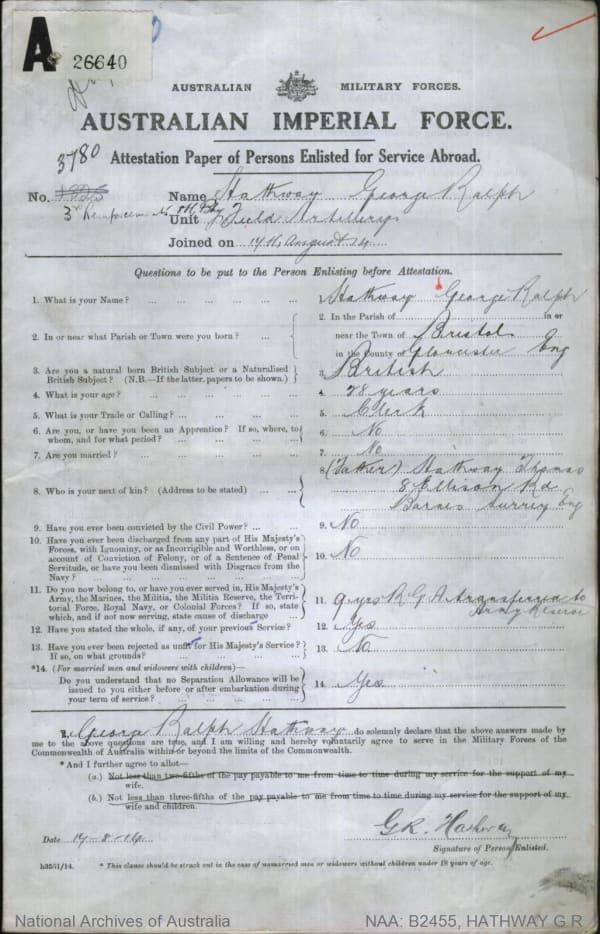 A 26640
AUSTRALIAN MILITARY FORCES.
AUSTRALIAN IMPERIAL FORCE.
3780 Attestation Paper of Persons Enlisted for Service Abroad.
No. Name Hathway George Ralph
3rd Reinforcements 8th Bty Unit Field Artillery
Joined on 17th August 14
Questions to be put to the Person Enlisting before Attestation.
1. What is your Name? ... ... ... ... ... 1. Hathway George Ralph
2. In or near what Parish or Town were you born? ... ... 2. In the Parish of in or
near the Town of Bristol
in the County of Gloucester Eng
3. Are you a natural born British Subject or a Naturalised
British Subject? (N.B.—If the latter, papers to be shown.) 3. British
4. What is your age? ... ... ... ... ... 4. 28 years
5. What is your Trade or Calling? ... ... ... ... 5. Clerk
6. Are you, or have you been an Apprentice? If so, where, to
whom, and for what period? ... ... ... ... 6. No
7. Are you married? ... ... ... ... ... 7. No
8. Who is your next of kin? (Address to be stated) ... ... 8. (Father) Hathway Thomas
8 Ellison Rd
Barnes Surrey Eng
9. Have you ever been convicted by the Civil Power? ... ... 9. No
10. Have you ever been discharged from any part of His Majesty's
Forces, with Ignominy, or as Incorrigible and Worthless, or on
account of Conviction of Felony, or of a Sentence of Penal
Servitude, or have you been dismissed with Disgrace from the
Navy? ... ... ... ... ... 10. No
11. Do you now belong to, or have you ever served in, His Majesty's
Army, the Marines, the Militia, the Militia Reserve, the Terri-
torial Force, Royal Navy, or Colonial Forces? If so, state
which, and if not now serving, state cause of discharge ... 11. 9 yrs R.G.A transferred to
Army Reserve
12. Have you stated the whole, if any, of your previous Service? 12. Yes
13. Have you ever been rejected as unfit for His Majesty's Service?
If so, on what grounds? ... ... ... ... 13. No
*14. (For married men and widowers with children)—
Do you understand that no Separation Allowance will be
issued to you either before or after embarkation during
your term of service? ... ... ... ... 14. Yes
I, George Ralph Hathway do solemnly declare that the above answers made by
me to the above questions are true, and I am willing and hereby voluntarily agree to serve in the Military Forces of the
Commonwealth of Australia within or beyond the limits of the Commonwealth.
* And I further agree to allot—
(a.) Not less than two-fifths of the pay payable to me from time to time during my service for the support of my
wife.
(b.) Not less than three-fifths of the pay payable to me from time to time during my service for the support of my
wife and children.
Date 17-8-14 G.R. Hathway
Signature of Person Enlisted.
h3551/14. * This clause should be struck out in the case of unmarried men or widowers without children under 18 years of age.
National Archives of Australia NAA: B2455, HATHWAY G R